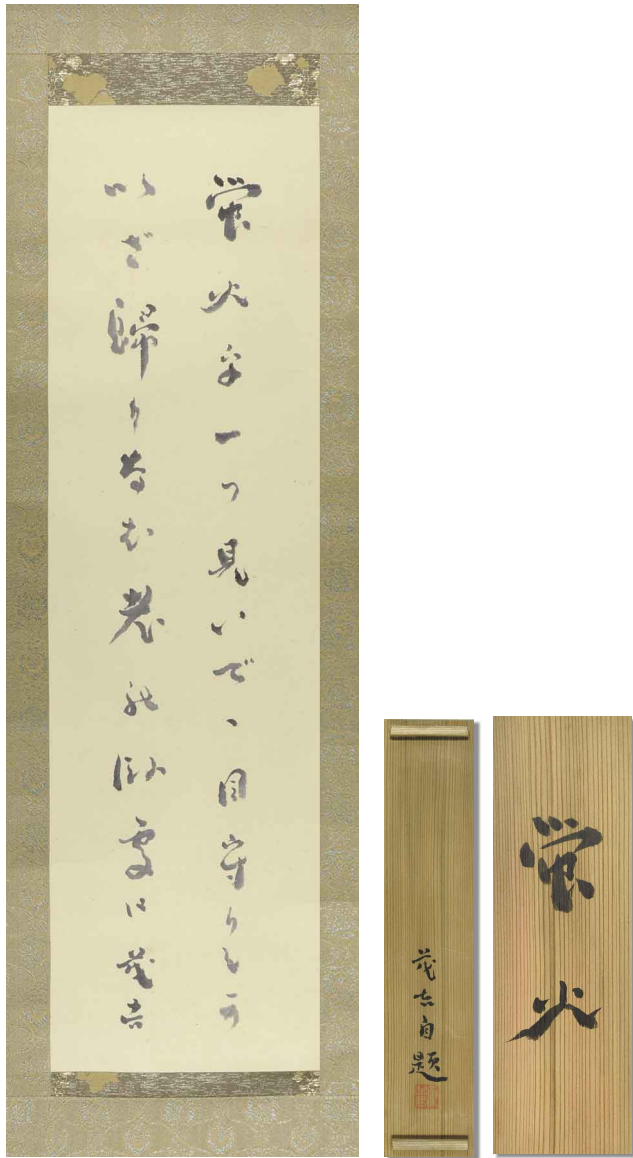 螢火を一つ見いでゝ目守りしか
いざ歸りなむ老の臥處に 茂吉
茂吉自題
螢火